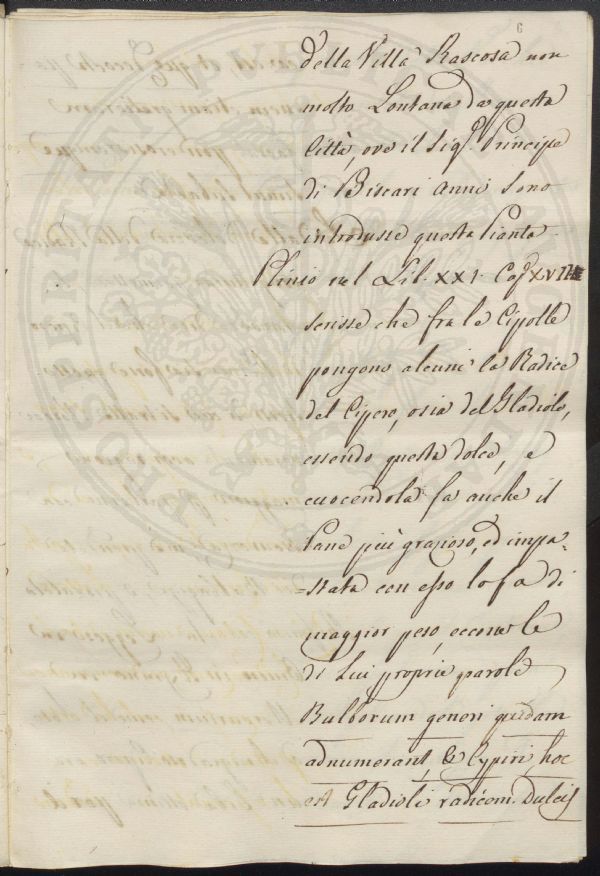 6
della Villa Rascosa non
molto Lontana da questa
Città, ove il Sigr. Principe
di Biscari anni sono
introdusse questa Pianta
Plinio nel Lib. XXI. Cap. XVII
scrisse che fra le Cipolle
pongono alcuni la Radice
del Cipero, osia del Gladiolo,
essendo questa dolce, e
cuocendola fa anche il
Pane più grazioso, ed impa-
-stata con esso lo fa di
maggior peso, eccone le
di Lui proprie parole
Bulborum generi quidam
adnumerant, & Cypiri, hoc
est Gladioli radicem. Dulcis